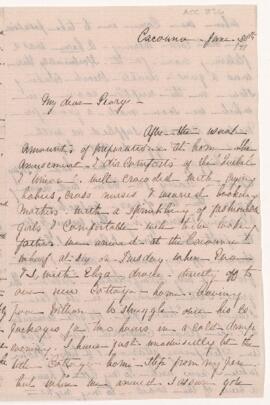 Cacouna - June 30th
/71
My dear George -
After the usual
amount of preparations at home - the
amusement & discomforts of the
well crowded with crying
babies, cross nurses & wearied looking
mothers with a sprinkling of fashionable
girls & comfortable
fathers - we arrived at the Cacouna
wharf at six on Tuesday - when
I, with Eliza drove directly off to
our new Cottage - home - leaving
poor William to struggle over his 60
packages for two hours, in a cold damp
morning. I have just unadvisedly let the
Cottage - home - slip from my pen
but when we arrived I